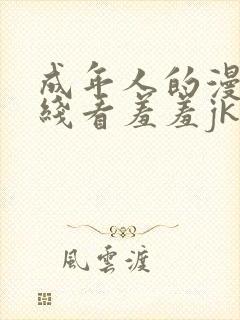 成年人的漫
綫看羞羞jk
風雲渡